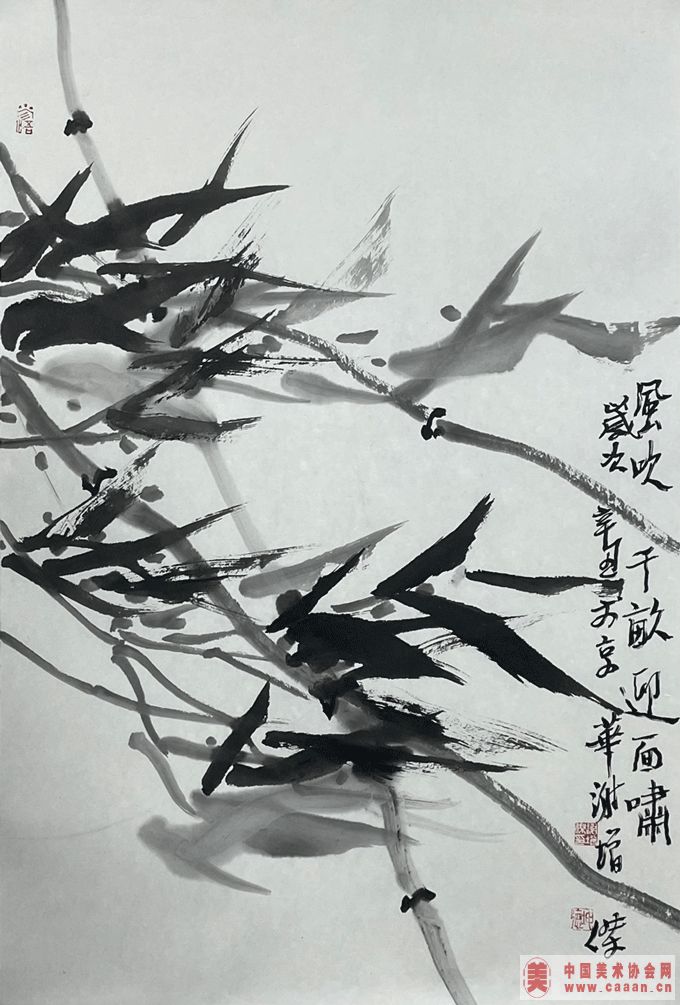 風吹千畝迎面嘯
歲次辛丑于京華謝增傑
中国美术协会网
www.caaan.cn